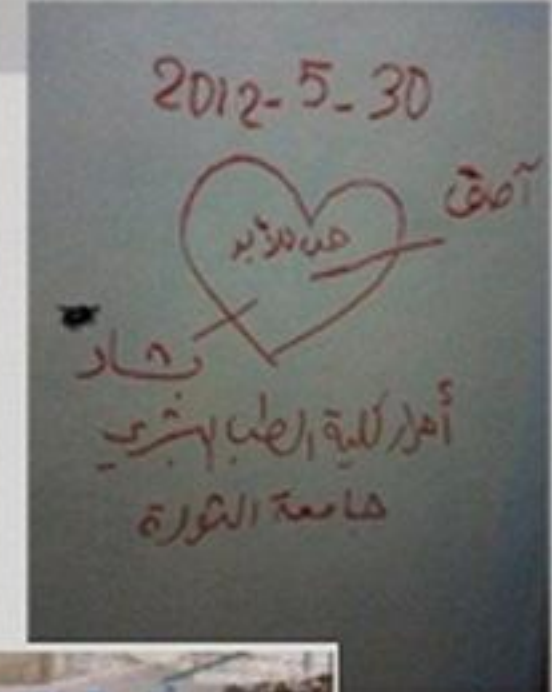 2012-5-30
آصف
حب للأبد
نهاد
أحرار كلية الطب البشري
جامعة الثورة